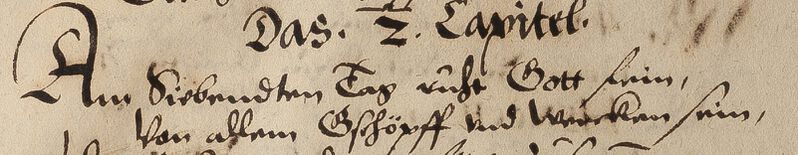 Das. 2. Capitel.
Am Siebendten Tag ruhe Gott fein,
Von allem Gschöpff und wercken sein,